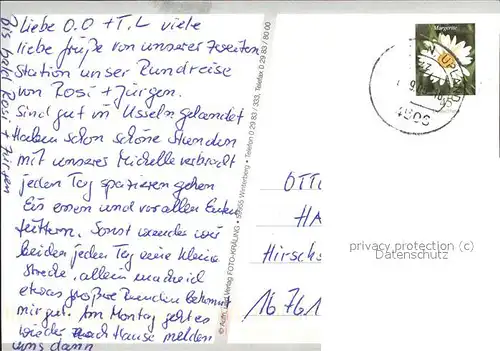 Liebe O.O + T, L viele
liebe Grüße von unserer zweiten
Station unser Rundreise
von Rosi + Jürgen.
Sind gut in Usseln gelandet
Haben schon schöne Stunden
mit unseres Michelle verbracht
jeden Tag spazieren gehen
Eis essen und vor allen Enten
füttern. Sonst wandern wir
beiden jeden Tag eine kleine
Strecke, allein und
etwas größere Runden bekommt
mir gut. Am Montag geht es
wieder nach Hause melden
uns dann
bis bald Rosi + Jürgen
Verlag FOTO-KRÄLING • 59955 Winterberg • Telefon 0 29 83 / 333, Telefax 0 29 83 / 80 00
Margerite
UPLAND
OTT
HA
Hirsch
16761
privacy protection (c)
Datenschutz